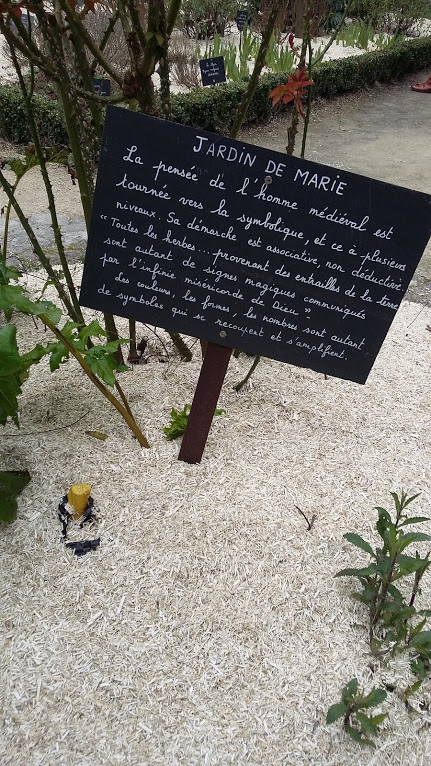 JARDIN DE MARIE
La pensée de l'homme médiéval est
tournée vers la symbolique, et ce à plusieurs
niveaux. Sa démarche est associative, non déductive.
"Toutes les herbes... provenant des entrailles de la terre
sont autant de signes magiques communiqués
par l'infinie miséricorde de Dieu."
Les couleurs, les formes, les nombres sont autant
de symboles qui se recoupent et s'amplifient.